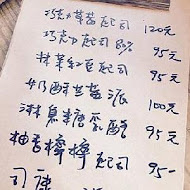 巧克力草莓起司 120元
巧克力起司 85% 95元
抹茶紅豆起司 95元
奶酥藍莓派 100元
淋黑糖乳酪 95元
柚香檸檬起司 95-
司康